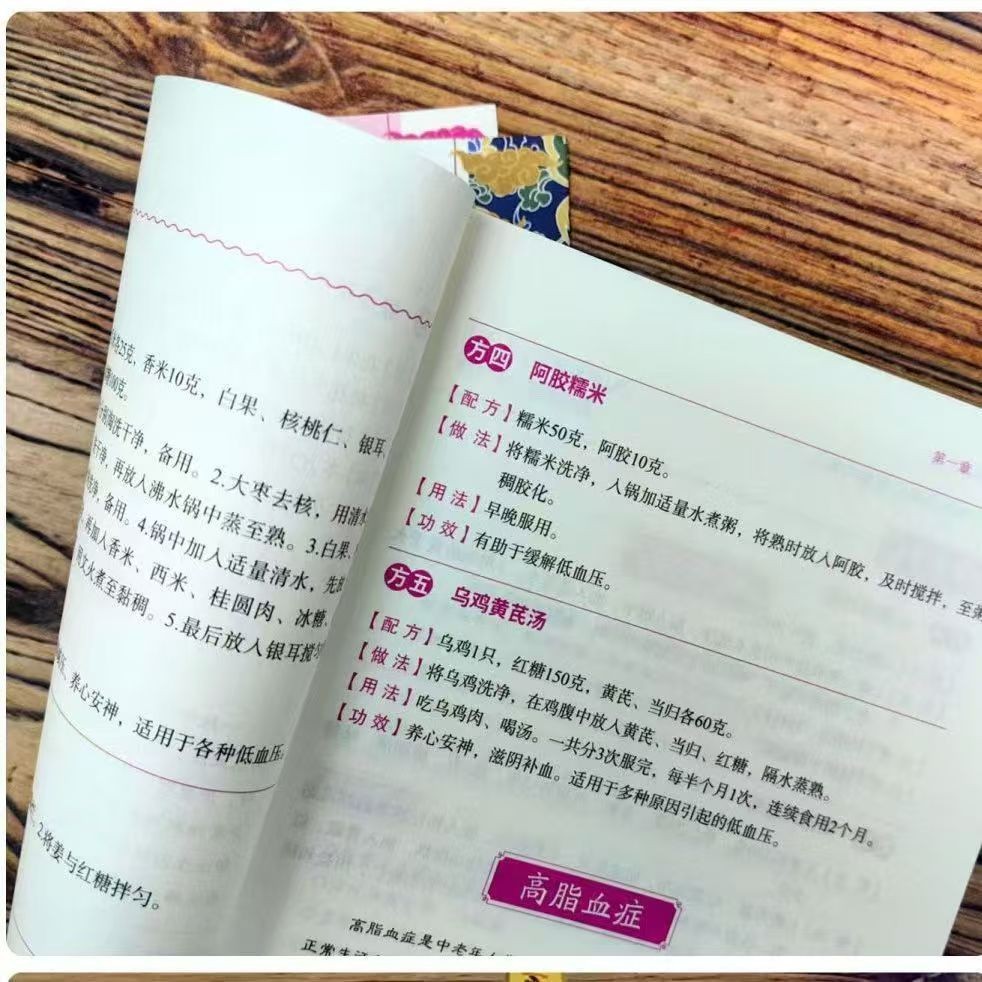 各25克，香米10克，白果、核桃仁、银耳、
100克。
淘洗干净，备用。2.大枣去核，用清水
干净，再放入沸水锅中蒸至熟。3.白果、
净，备用。4.锅中加入适量清水，先放
再加入香米、西米、桂圆肉、冰糖、
用文火煮至黏稠。5.最后放入银耳搅匀
养心安神，适用于各种低血压。
2.将姜与红糖拌匀。
第一章
方四 阿胶糯米
【配方】糯米50克，阿胶10克。
【做法】将糯米洗净，入锅加适量水煮粥，将熟时放入阿胶，及时搅拌，至粥
稠胶化。
【用法】早晚服用。
【功效】有助于缓解低血压。
方五 乌鸡黄芪汤
【配方】乌鸡1只，红糖150克，黄芪、当归各60克。
【做法】将乌鸡洗净，在鸡腹中放入黄芪、当归、红糖，隔水蒸熟。
【用法】吃乌鸡肉、喝汤。一共分3次服完，每半个月1次，连续食用2个月。
【功效】养心安神，滋阴补血。适用于多种原因引起的低血压。
高脂血症
高脂血症是中老年人
正常生活